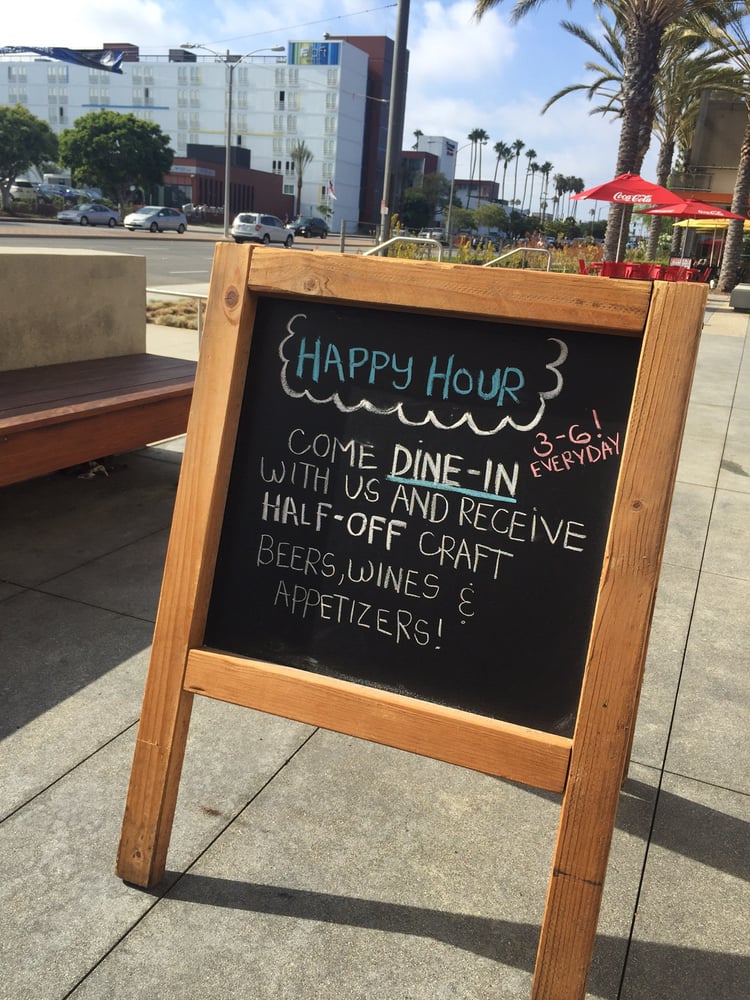 HAPPY HOUR
3-6!
EVERYDAY
COME DINE-IN
WITH US AND RECEIVE
HALF-OFF CRAFT
BEERS, WINES &
APPETIZERS!
Coca-Cola